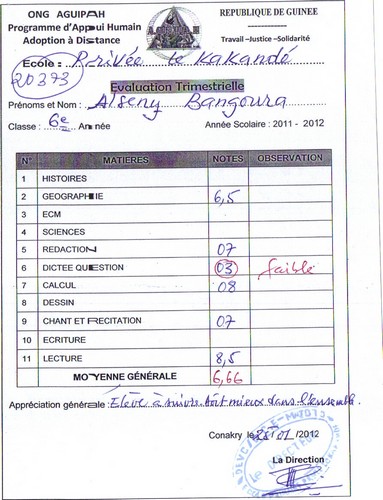 ONG AGUIPAH
REPUBLIQUE DE GUINEE
Programme d'Appui Humain
Adoption à Distance
Travail –Justice –Solidarité
Ecole : Privée le Kakandé
20373
Evaluation Trimestrielle
Prénoms et Nom : Alseny Bangoura
Classe : 6e Année
Année Scolaire : 2011 - 2012
N° MATIERES NOTES OBSERVATION
1 HISTOIRES
2 GEOGRAPHIE 6,5
3 ECM
4 SCIENCES
5 REDACTION 07
6 DICTEE QUESTION 03 faible
7 CALCUL 08
8 DESSIN
9 CHANT ET RECITATION 07
10 ECRITURE
11 LECTURE 8,5
MOYENNE GÉNÉRALE 6,66
Appréciation générale : Elève à suivre doit mieux dans l'ensemble.
Conakry le 25/01/2012
La Direction